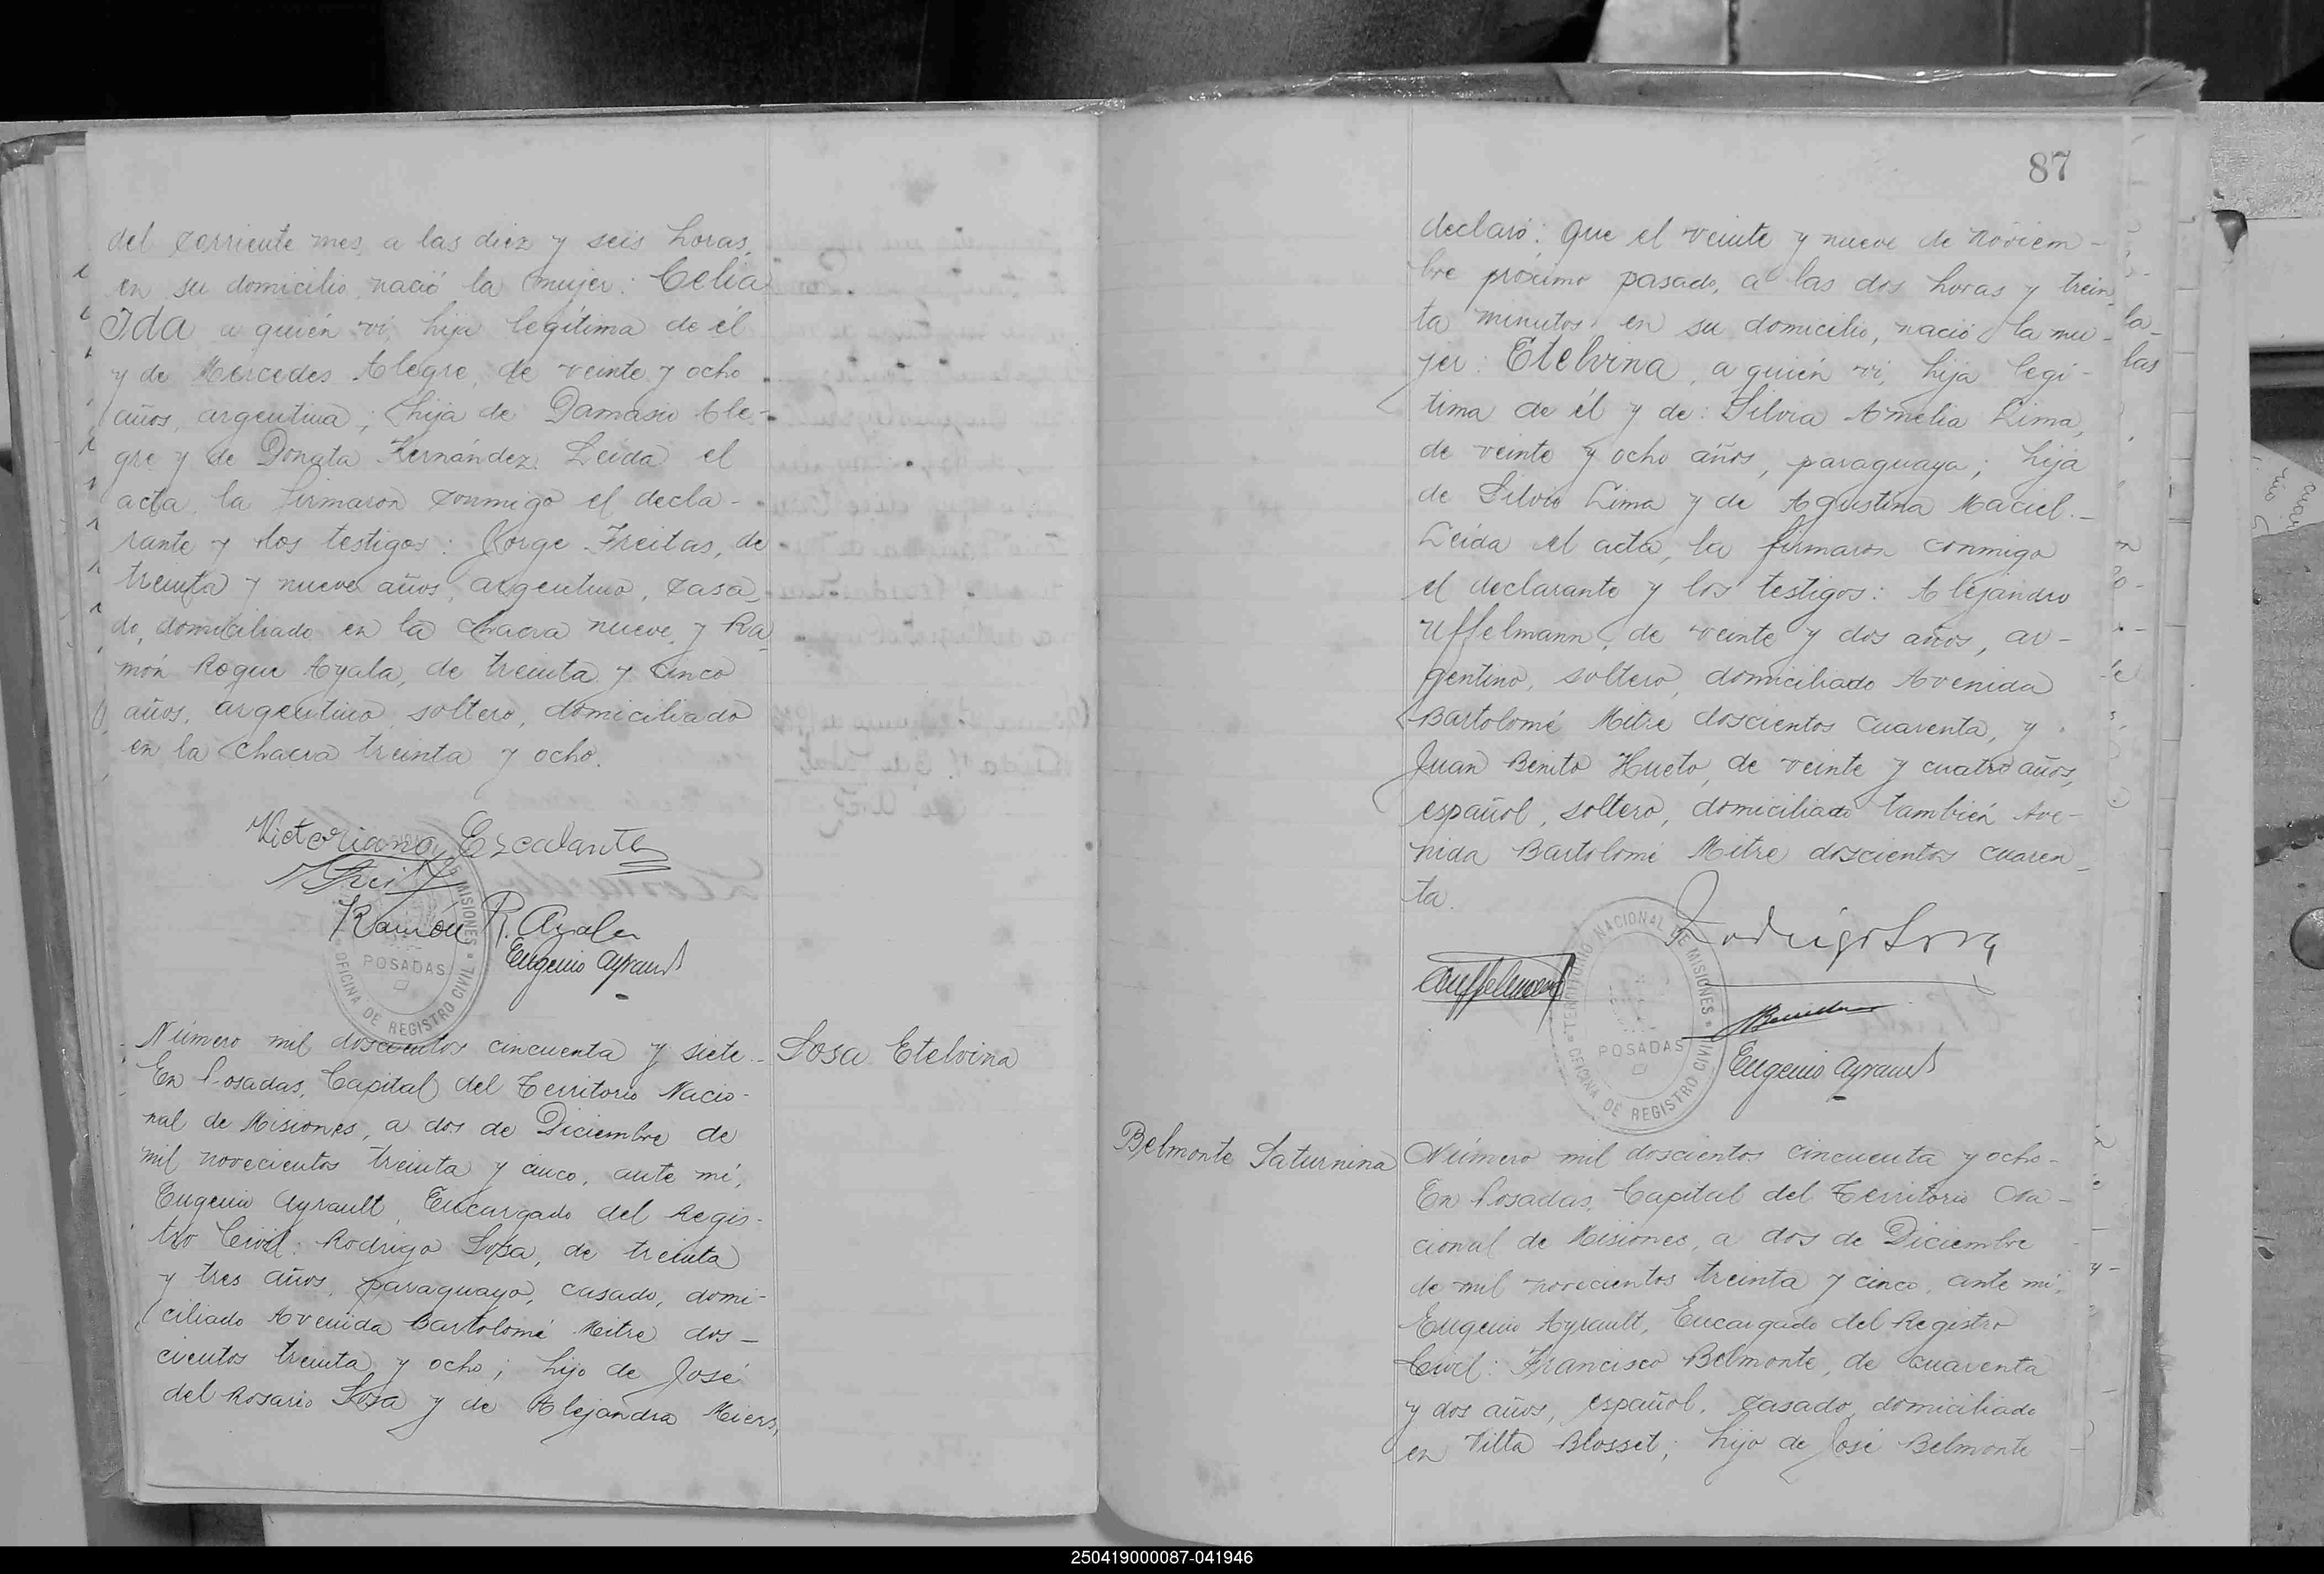 del corriente mes, a las diez y seis horas,
en su domicilio, nació la mujer: Celia
Ida a quién ví, hija legítima de él
y de Mercedes Alegre, de veinte y ocho
años, argentina; hija de Damasio Ale-
gre y de Donata Hernández. Leída el
acta, la firmaron conmigo el decla-
rante y los testigos: Jorge Freitas, de
treinta y nueve años, argentino, casa-
do, domiciliado en la chacra nueve, y Ra
món Roque Ayala, de treinta y cinco
años, argentino, soltero, domiciliado
en la chacra treinta y ocho.
Victoriano Escalante
Ramón R. Ayala
Eugenio Ayrault
MISIONES
POSADAS
OFICINA DE REGISTRO CIVIL
Número mil doscientos cincuenta y siete.-
Sosa Etelvina
En Posadas, Capital del Territorio Nacio-
nal de Misiones, a dos de Diciembre de
mil novecientos treinta y cinco, ante mí,
Eugenio Ayrault, Encargado del Regis-
tro Civil: Rodrigo Sosa, de treinta
y tres años, paraguayo, casado, domi-
ciliado Avenida Bartolomé Mitre dos-
cientos treinta y ocho; hijo de José
del Rosario Sosa y de Alejandra Meiers,
87
declaró: Que el veinte y nueve de noviem-
bre próximo pasado, a las dos horas y trein-
ta minutos, en su domicilio, nació la mu-
jer: Etelvina, a quién ví, hija legí-
tima de él y de: Silvia Amelia Lima,
de veinte y ocho años, paraguaya; hija
de Silvio Lima y de Agustina Maciel.-
Leída el acta, la firmaron conmigo
el declarante y los testigos: Alejandro
Uffelmann, de veinte y dos años, ar-
gentino, soltero, domiciliado Avenida
Bartolomé Mitre doscientos cuarenta, y
Juan Benito Hueto, de veinte y cuatro años,
español, soltero, domiciliado también Ave-
nida Bartolomé Mitre doscientos cuaren-
ta.
Rodrigo Sosa
AUffelmann
Eugenio Ayrault
TERRITORIO NACIONAL DE MISIONES
POSADAS
OFICINA DE REGISTRO CIVIL
Belmonte Saturnina
Número mil doscientos cincuenta y ocho.-
En Posadas, Capital del Territorio Na-
cional de Misiones, a dos de Diciembre
de mil novecientos treinta y cinco, ante mí,
Eugenio Ayrault, Encargado del Registro
Civil: Francisco Belmonte, de cuarenta
y dos años, español, casado, domiciliado
en Villa Blosset; hijo de José Belmonte
la-
las
250419000087-041946